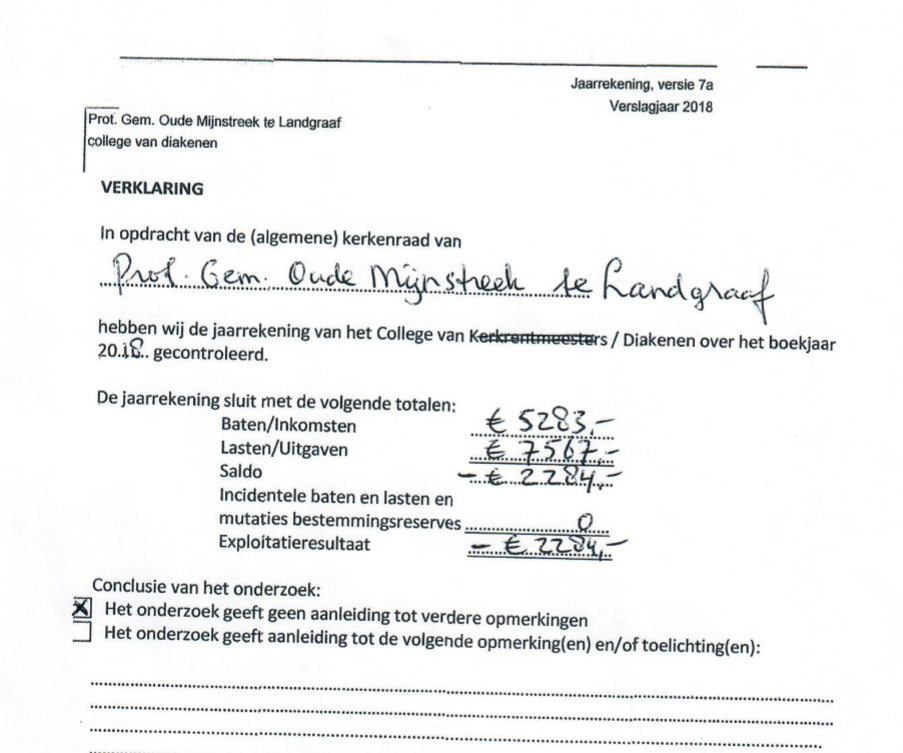 Jaarrekening, versie 7a
Verslagjaar 2018
Prot. Gem. Oude Mijnstreek te Landgraaf
college van diakenen
VERKLARING
In opdracht van de (algemene) kerkenraad van
Prot. Gem. Oude Mijnstreek te Landgraaf
hebben wij de jaarrekening van het College van Kerkrentmeesters / Diakenen over het boekjaar
2018.. gecontroleerd.
De jaarrekening sluit met de volgende totalen:
Baten/Inkomsten € 5283,-
Lasten/Uitgaven € 7567,-
Saldo - € 2284,-
Incidentele baten en lasten en
mutaties bestemmingsreserves 0
Exploitatieresultaat - € 2284,-
Conclusie van het onderzoek:
Het onderzoek geeft geen aanleiding tot verdere opmerkingen
Het onderzoek geeft aanleiding tot de volgende opmerking(en) en/of toelichting(en):